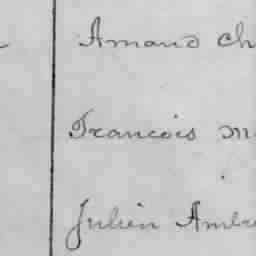 Amand ch
Francois m
Julien Ambr